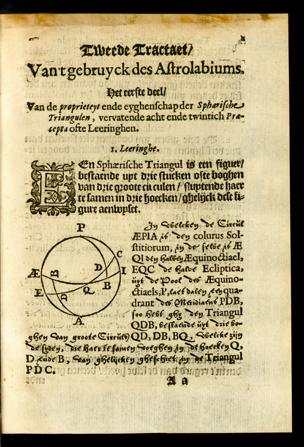 Tweede Tractaet/
Van t gebruyck des Astrolabiums.
Het eerste deel/
Van de proprieteyt ende eyghenschap der Sphærische
Triangulen, vervatende acht ende twintich Præ-
cepta ofte Leeringhen.
1. Leeringhe.
EEn Sphærische Triangul is een figuer/
bestaende upt drie stucken ofte boghen
van drie groote circulen/ sluytende haer
te samen in drie hoecken/ ghelijck dese fi-
gure aenwyset.
P
D
C
I
Æ
Q
B
E
A
In welcken de Circul
ÆPIA is den colurus Sol-
stitiorum, in de selve is Æ
QI den halven Æquinoctiael,
EQC de halve Ecliptica,
uyt de Pool des Æquino-
ctiaels P, laet dalen een qua-
drant des Meridiaens PDB,
soo hebt ghy den Triangul
QDB, bestaende uyt drie bo-
ghen van groote Circulen QD, DB, BQ, welcke zijn
de syden, die haer te samen voeghen in de hoecken Q,
D ende B, van ghelijcken gheschiet in de Triangul
PDC.
A a